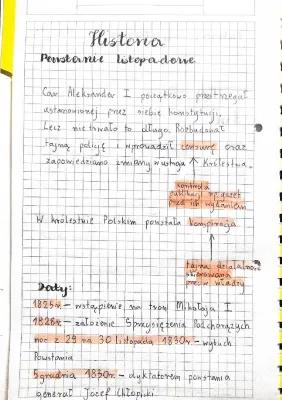 Historia
Powstanie listopadowe
Car Aleksander I początkowo przestrzegał
ustanowionej przez siebie konstytucji.
Lecz nie trwało to długo. Rozbudował
tajną policję i wprowadził cenzurę oraz
zapowiedziano zmiany ustroju Królestwa.
kontrola
publikacji
przed ich wydaniem
W Królestwie Polskim powstała konspiracja
tajna działalność
skierowana
przeciw władzy
Daty:
1825r. - wstąpienie na tron Mikołaja I
1828r. - założenie Sprzysiężenia Podchorążych
noc z 29 na 30 listopada 1830r. - wybuch
Powstania
5 grudnia 1830r. - dyktatorem powstania
generał Józef Chłopicki